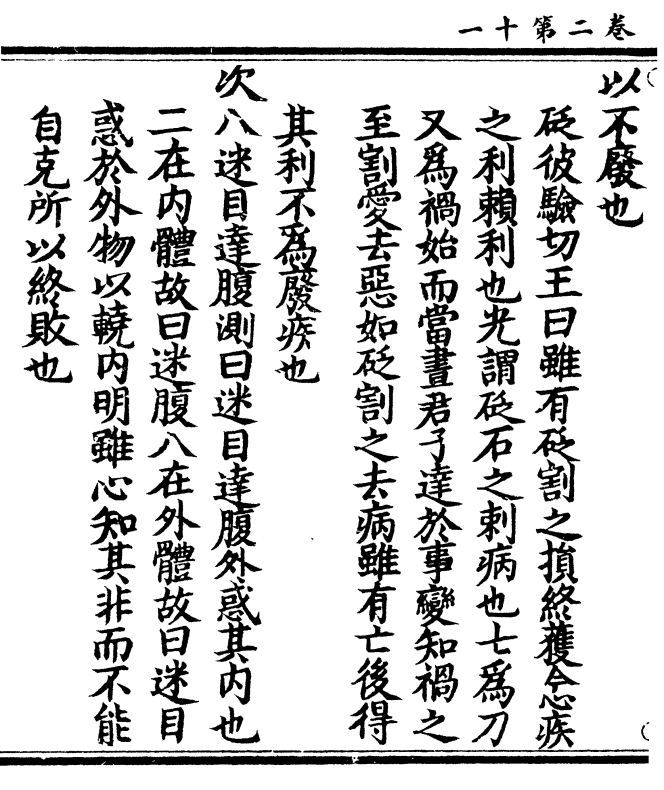 卷二第十一
以不廢也
砭彼驗切王曰雖有砭割之損終獲愈疾
之利賴利也光謂砭石之刺病也七為刀
又為禍始而當晝君子達於事變知禍之
至割愛去惡如砭割之去病雖有亡後得
其利不為廢疾也
次八迷目達腹測曰迷目達腹外惑其內也
二在內體故曰迷腹八在外體故曰迷目
惑於外物以撓內明雖心知其非而不能
自克所以終敗也